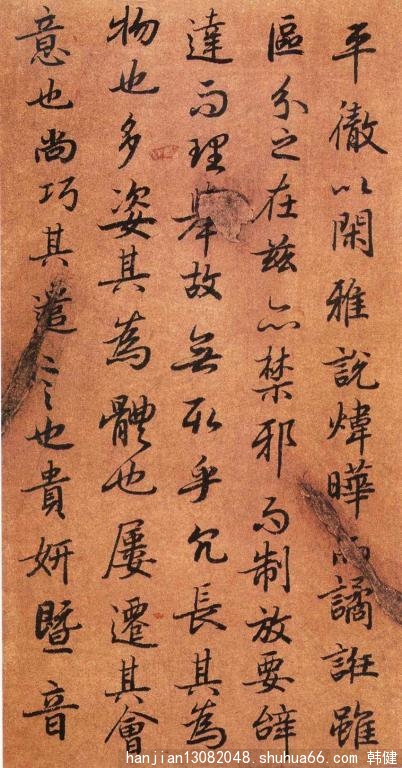 平徹以閑雅說煒曄而譎誑雖
區分之在茲亦禁邪而制放要辭
達而理舉故無取乎冗長其為
物也多姿其為體也屢遷其會
意也尚巧其遣言也貴妍暨音
hanjian13082048.shuhua66.com 韩健